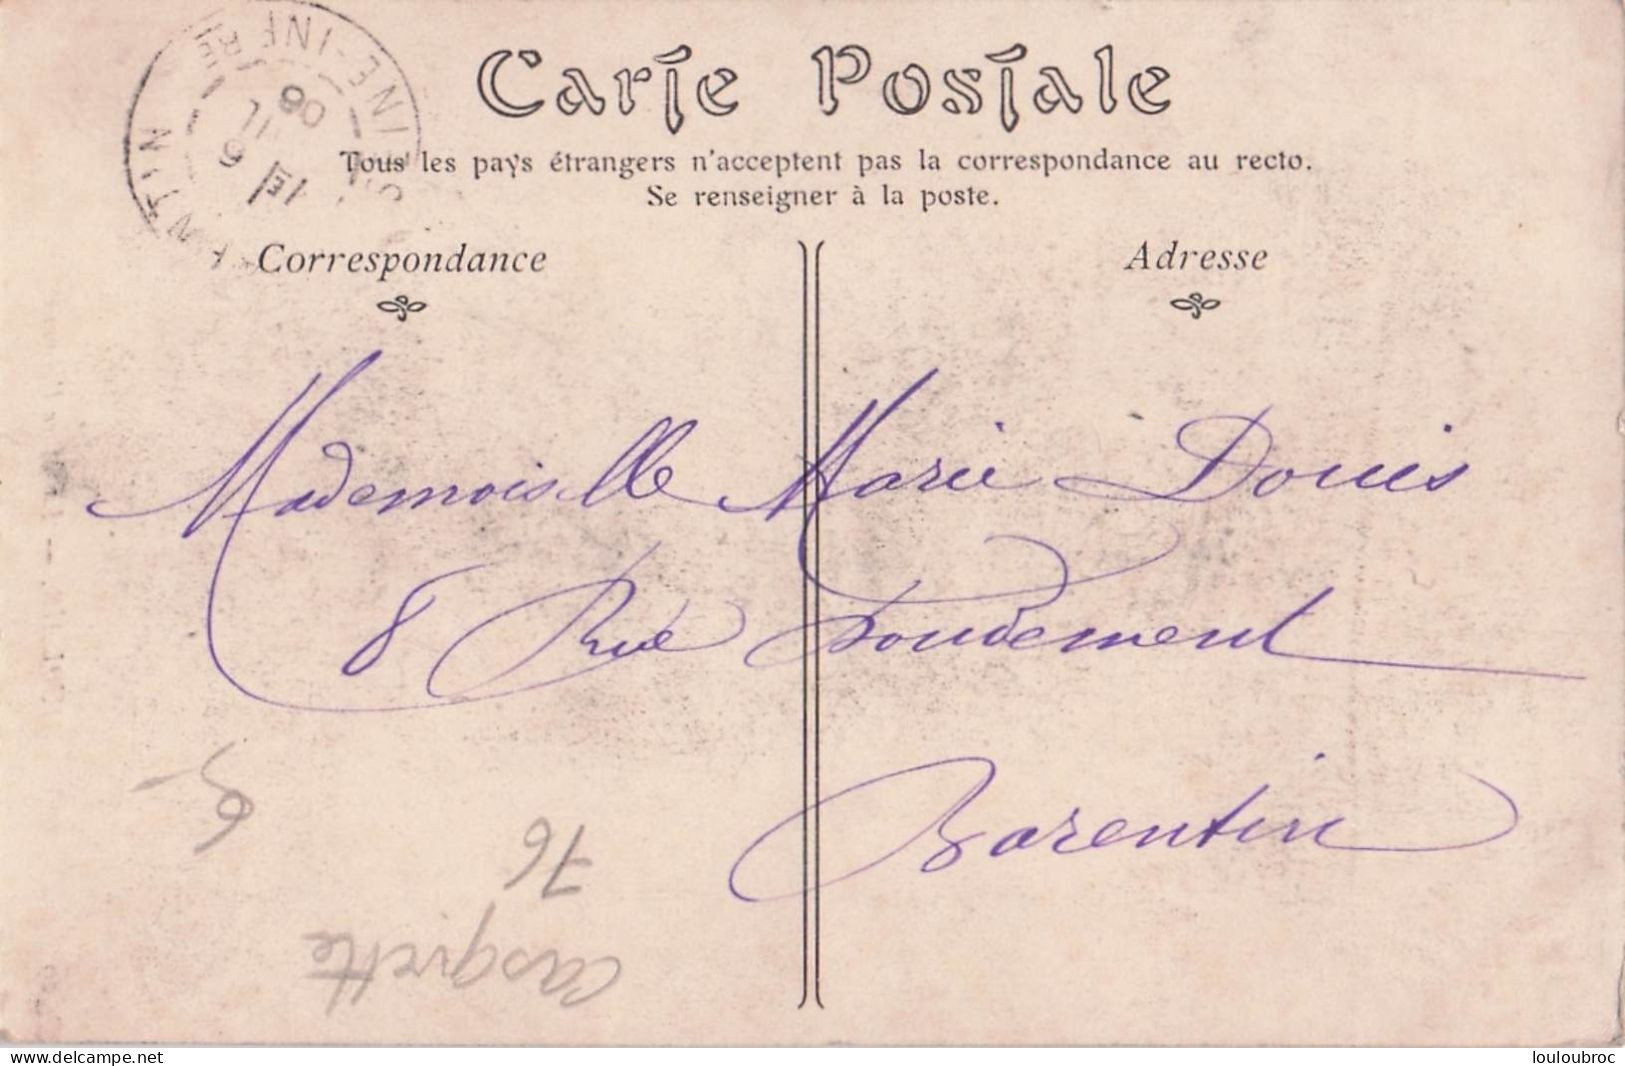 Carte Postale
Tous les pays étrangers n'acceptent pas la correspondance au recto.
Se renseigner à la poste.
Correspondance
Adresse
Mademoiselle Marie Douis
8 Rue Doudement
Barentin
6,-
76
Casquette
INE-INFRE
06
6
1E
NTIN
www.delcampe.net
louloubroc